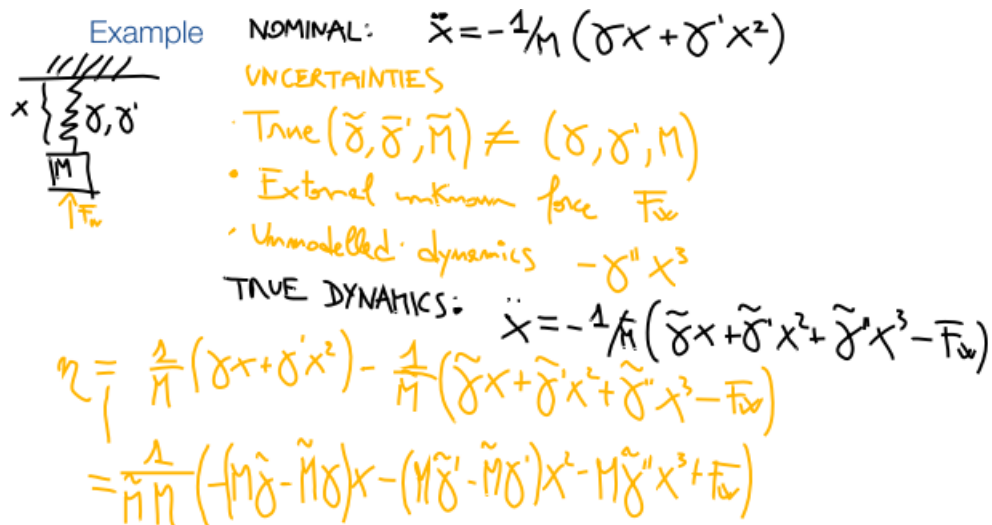 Example NOMINAL: ẍ = -1/M (γx + γ'x²)
UNCERTAINTIES
x γ, γ'
· True (γ̃, γ̃', M̃) ≠ (γ, γ', M)
M
• External unknown force F_w
F_w
· Unmodelled dynamics -γ''x³
TRUE DYNAMICS: ẍ = -1/M̃ (γ̃x + γ̃'x² + γ̃''x³ - F_w)
η = 1/M (γx + γ'x²) - 1/M̃ (γ̃x + γ̃'x² + γ̃''x³ - F_w)
= 1/M̃M (-(Mγ̃ - M̃γ)x - (Mγ̃' - M̃γ')x² - Mγ̃''x³ + F_w)